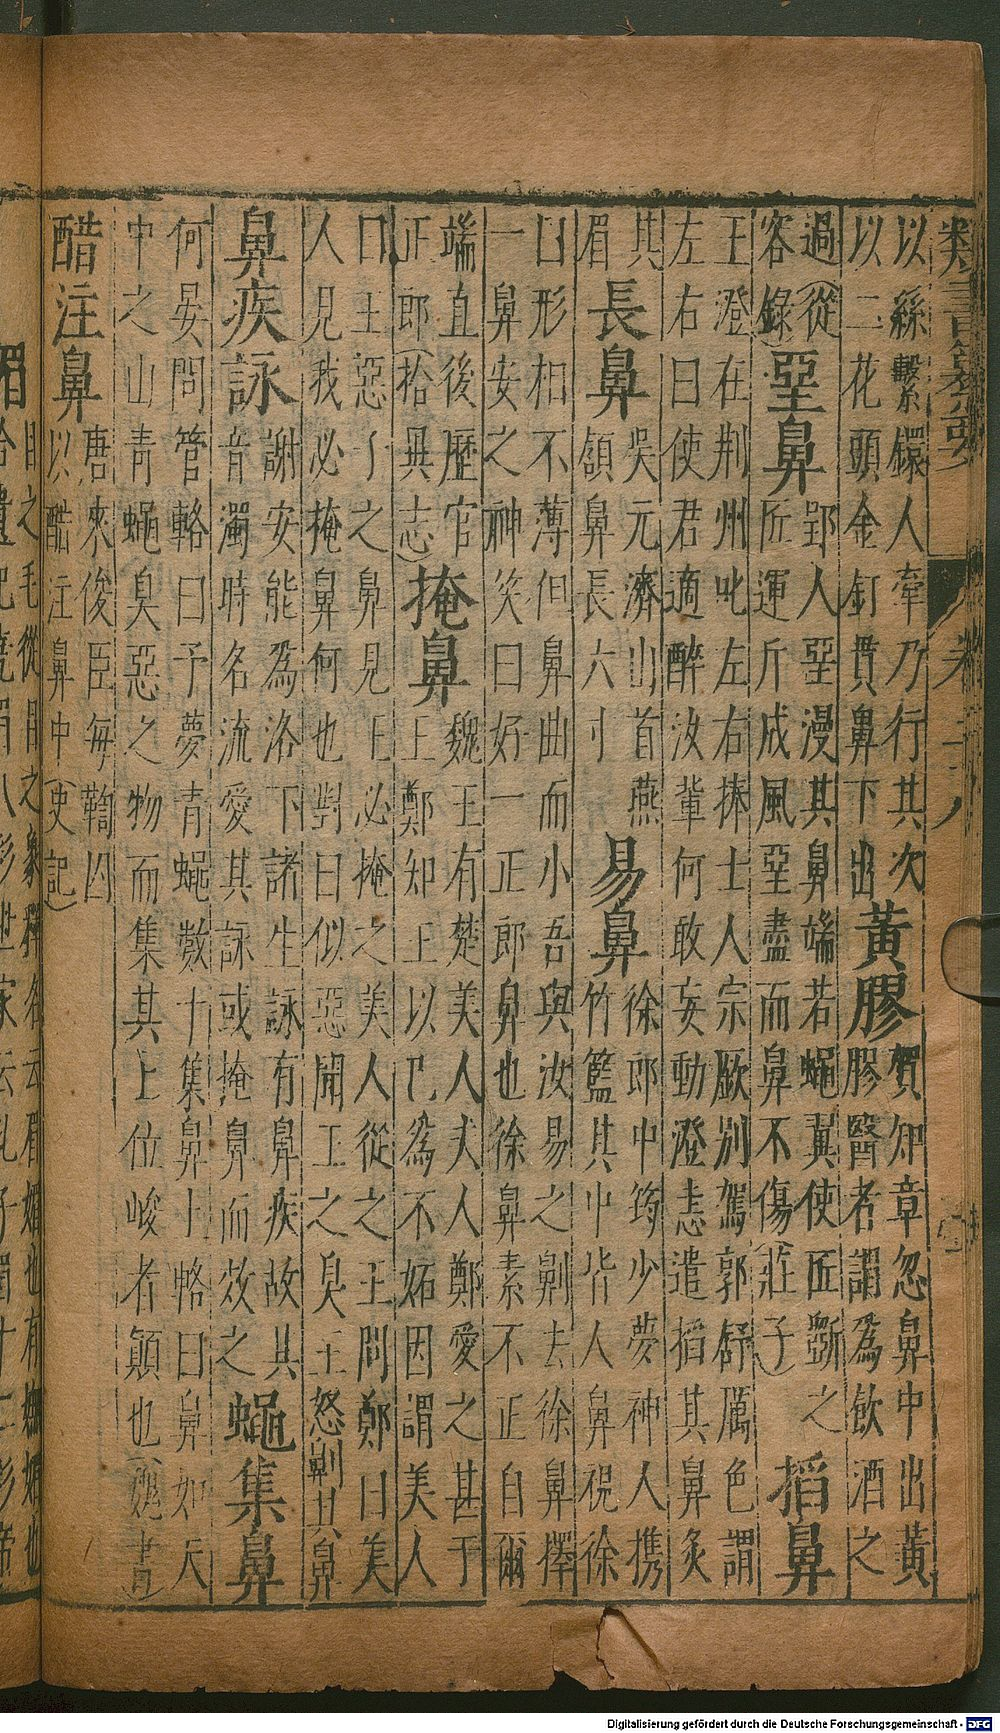 類書纂要
以絲繫鐶人牽乃行其次
以二花頭金釘貫鼻下出
黃膠
賀知章忽鼻中出黃
膠醫者謂爲飲酒之
過(從
容錄)
堊鼻
郢人堊漫其鼻端若蠅翼使匠斲之
匠運斤成風堊盡而鼻不傷(莊子)
搯鼻
王澄在荆州叱左右捧士人宗廞別駕郭舒厲色謂
左右曰使君適醉汝輩何敢妄動澄恚遣搯其鼻灸
其
眉
長鼻
吳元濟山首燕
頷鼻長六寸
易鼻
徐郎中筠少夢神人携
竹籃其中皆人鼻視徐
曰形相不薄但鼻曲而小吾與汝易之剔去徐鼻擇
一鼻安之神笑曰好一正郎鼻也徐鼻素不正自爾
端直後歷官
正郎(拾異志)
掩鼻
魏王有楚美人夫人鄭愛之甚于
王鄭知王以已爲不妬因謂美人
曰王惡了之鼻見王必掩之美人從之王問鄭曰美
人見我必掩鼻何也對曰似惡聞王之臭王怒劓其鼻
鼻疾詠
謝安能爲洛下諸生詠有鼻疾故其
音濁時名流愛其詠或掩鼻而效之
蠅集鼻
何晏問管輅曰予夢青蠅數十集鼻上輅曰鼻如天
中之山青蠅臭惡之物而集其上位峻者顛也(魏書)
醋注鼻
唐來俊臣每鞫囚
以醋注鼻中(史記)
眉
目之毛從目之象釋名云眉媚也有嫵媚也
Digitalisierung gefördert durch die Deutsche Forschungsgemeinschaft - DFG